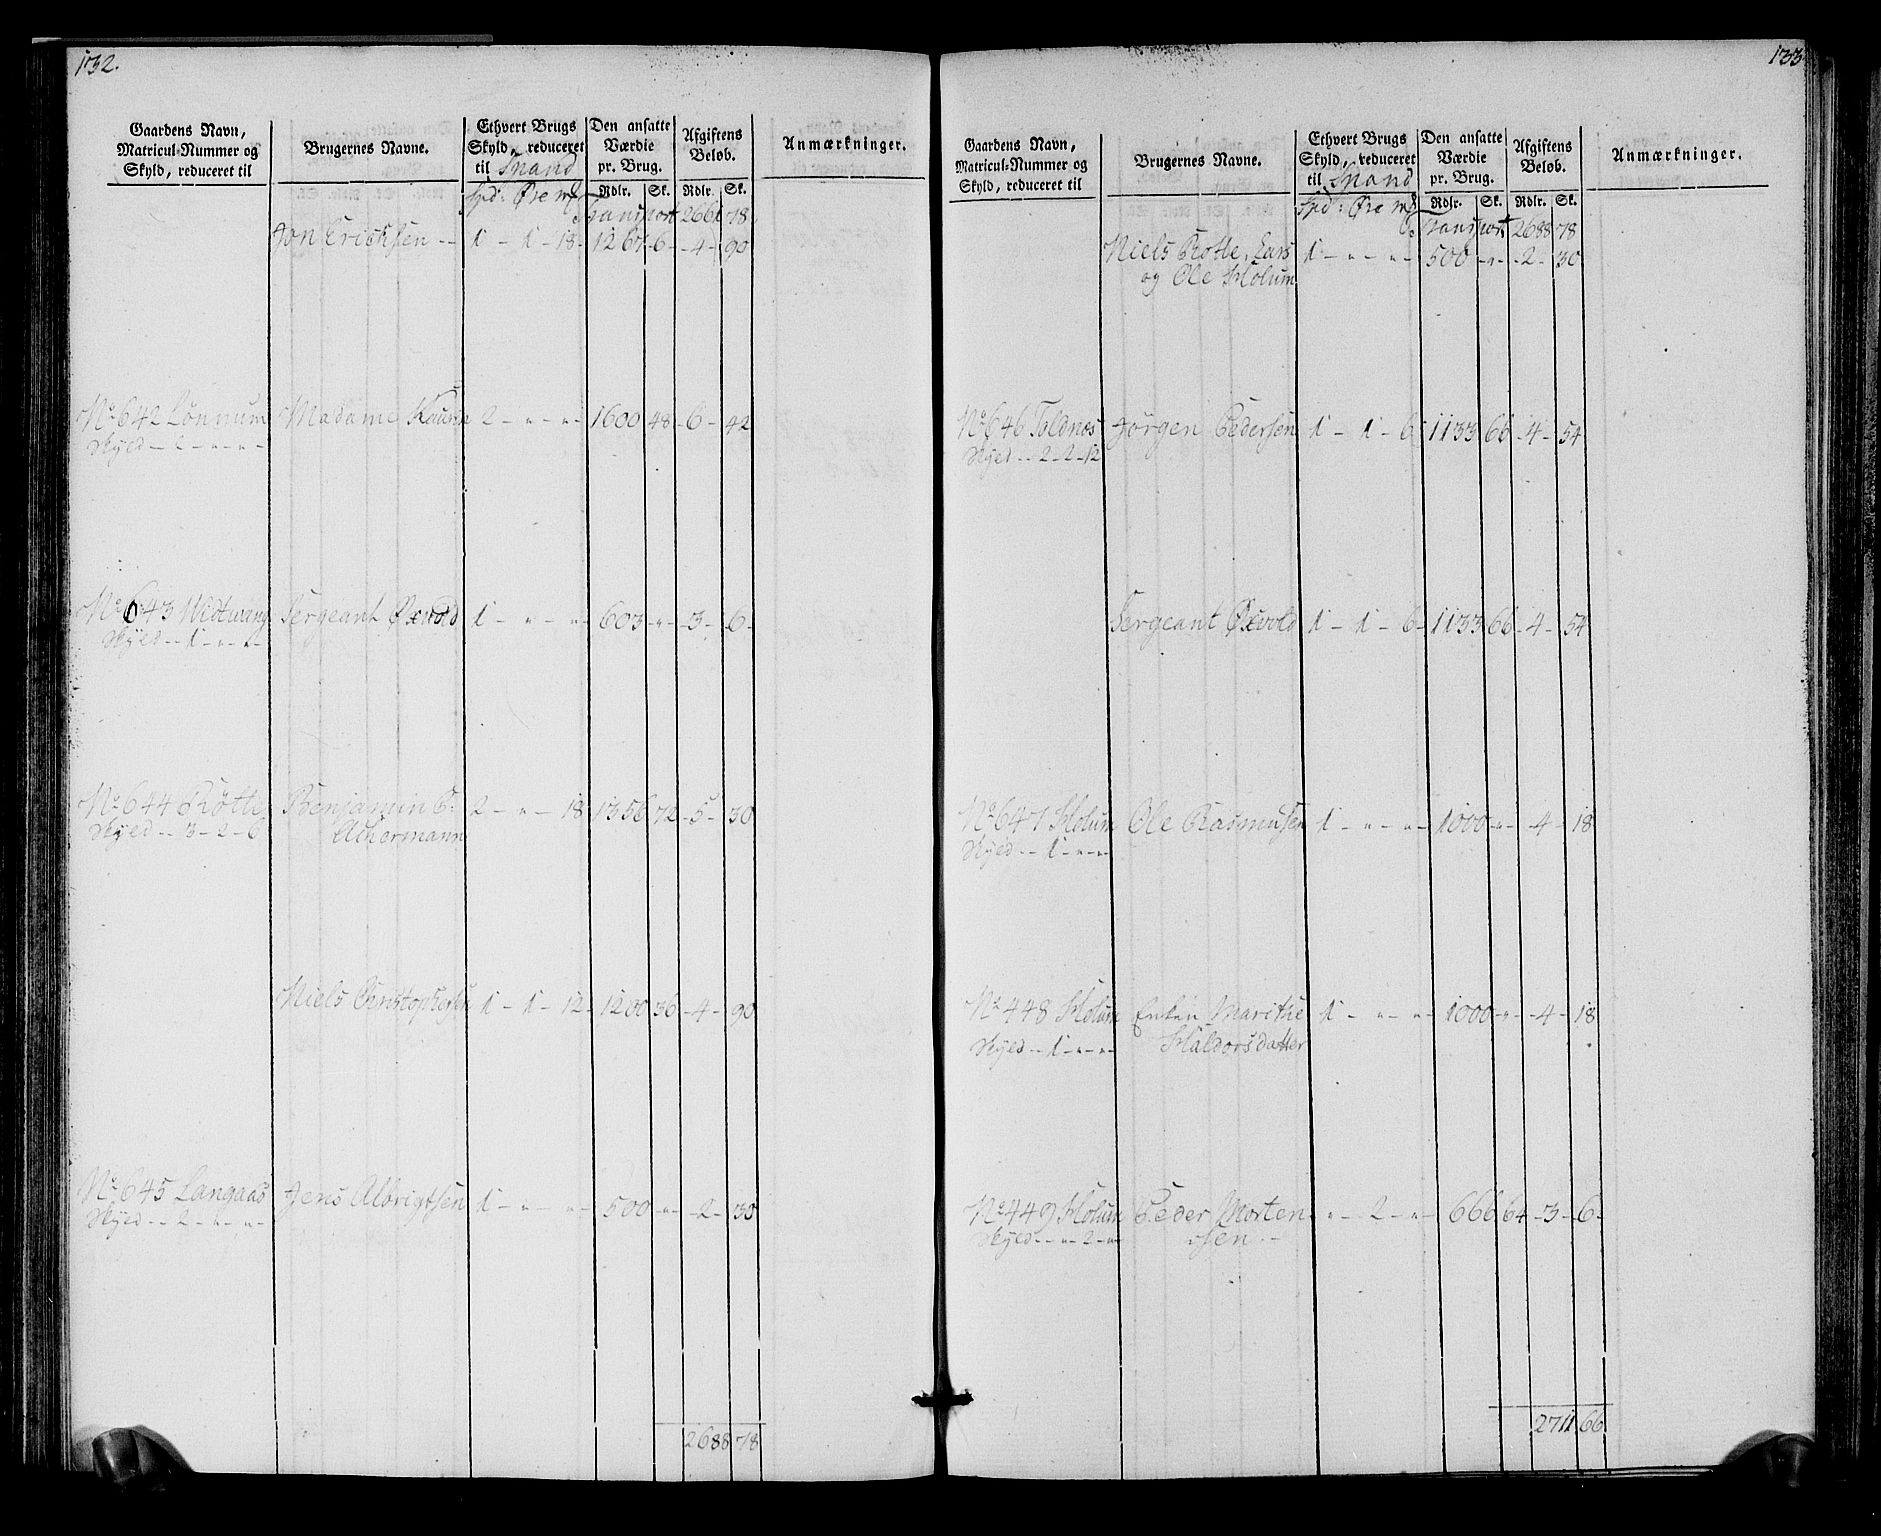 132.
Gaardens Navn,
Matricul-Nummer og
Skyld, reduceret til
Brugernes Navne.
Ethvert Brugs
Skyld, reduceret
til Spand
Spd: Øre mk
Den ansatte
Værdie
pr. Brug.
Rdlr. Sk.
Afgiftens
Beløb.
Rdlr. Sk.
Anmærkninger.
Transport 2661 78
Jon Ericksen -- 1 - 1 - 18 - 1267 - 6 - - 4 - 90
No 642 Lønnum Madame Kaurin 2 - " - " - 1600 48 - 6 - 42
Skyld - 2 - " - " -
No 643 Widtwang Sergeant Øxvold 1 - " - " - 603 - " - - 3 - 6 -
Skyld - - 1 - " - " -
No 644 Røtte Benjamin P: 2 - " - 18 - 1356 72 - 5 - 30
Skyld - - 3 - 2 - 6 Achermann
Niels Christophersen 1 - 1 - 12 - 1200 36 - 4 - 90
No 645 Langaas Jens Albrigtsen 1 - " - " - 500 - " - - 2 - 30
Skyld - - 2 - " - " -
2688 78
133
Gaardens Navn,
Matricul-Nummer og
Skyld, reduceret til
Brugernes Navne.
Ethvert Brugs
Skyld, reduceret
til Spand
Spd: Øre mk
Den ansatte
Værdie
pr. Brug.
Rdlr. Sk.
Afgiftens
Beløb.
Rdlr. Sk.
Anmærkninger.
Transport 2688 78
Niels Rotte, Lars 1 - " - " - 500 - " - - 2 - 30
og Ole Holum
No 646 Toldnes Jørgen Pedersen 1 - 1 - 6 - 1133 66 - 4 - 54
Skyld - - 2 - 2 - 12
Sergeant Øxvold 1 - 1 - 6 - 1133 66 - 4 - 54
No 647 Holum Ole Rasmusen 1 - " - " - 1000 - " - - 4 - 18
Skyld - - 1 - " - " -
No 448 Holum Enken Marithe 1 - " - " - 1000 - " - - 4 - 18
Skyld - - 1 - " - " - Haldorsdatter
No 449 Holum Peder Morten " - 2 - " - 666 64 - 3 - 6 -
Skyld - - " - 2 - " - sen - -
2711 66